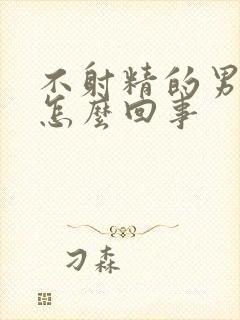 不射精的男
怎麼回事
刁森